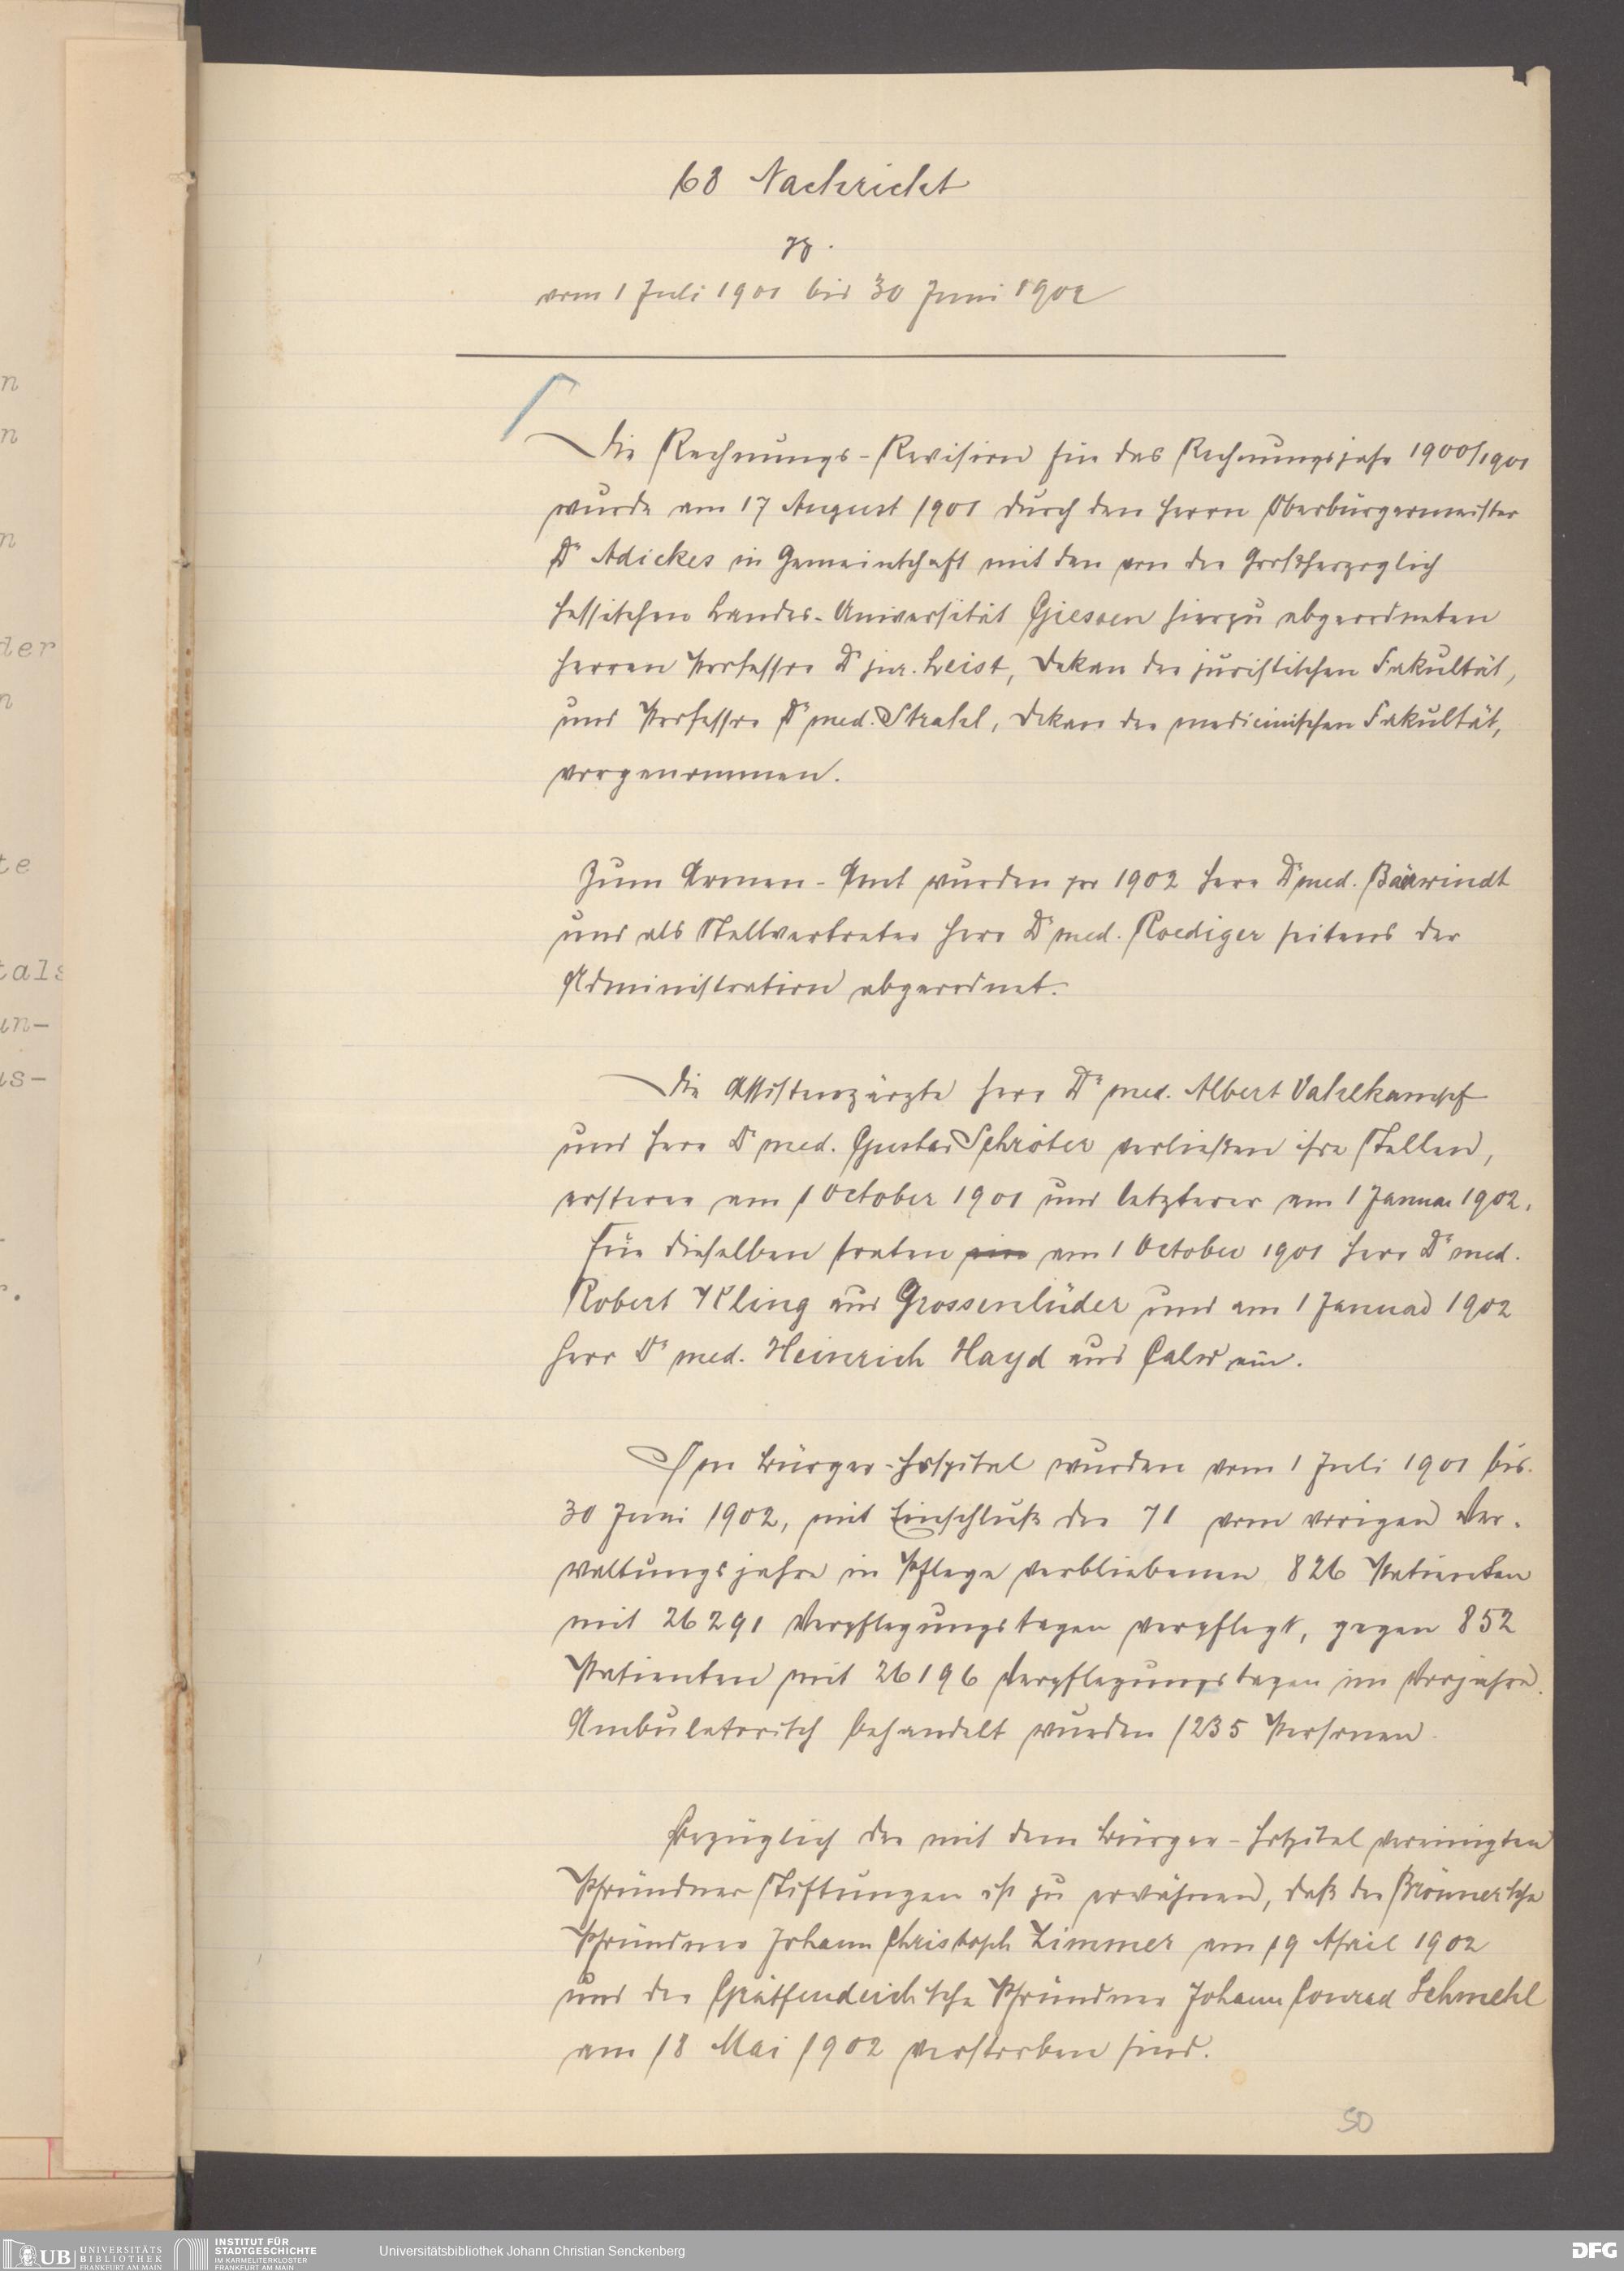 68 Nachricht
pp.
vom 1 Juli 1901 bis 30 Juni 1902
Die Rechnungs-Revision für das Rechnungsjahr 1900/1901
wurde am 17 August 1901 durch den Herrn Oberbürgermeister
Dr Adickes in Gemeinschaft mit den von der Großherzoglich
hessischen Landes-Universität Giessen hierzu abgeordneten
Herren Professor Dr jur. Leist, Dekan der juristischen Fakultät,
und Professor Dr med. Strahl, Dekan der medicinischen Fakultät,
vorgenommen.
Zum Armen-Amt wurden pro 1902 Herr Dr med. Bärwindt
und als Stellvertreter Herr Dr med. Roediger seitens der
Administration abgeordnet.
Die Assistenzärzte Herr Dr med. Albert Vahlkampf
und Herr Dr med. Gustav Schröter verließen ihre Stellen,
ersterer am 1 October 1901 und letzterer am 1 Januar 1902.
Für dieselben traten ein am 1 October 1901 Herr Dr med.
Robert Kling aus Grossenlüder und am 1 Januar 1902
Herr Dr med. Heinrich Hayd aus Calw ein.
Im Bürger-Hospital wurden vom 1 Juli 1901 bis
30 Juni 1902, mit Einschluß der 71 vom vorigen Ver-
waltungsjahre in Pflege verbliebenen 826 Patienten
mit 26291 Verpflegungstagen verpflegt, gegen 852
Patienten mit 26196 Verpflegungstagen im Vorjahre.
Ambulatorisch behandelt wurden 1235 Personen.
Bezüglich der mit dem Bürger-Hospital vereinigten
Pfründner Stiftungen ist zu erwähnen, daß der Brönner'sche
Pfründner Johann Christoph Zimmer am 19 April 1902
und der Gräffendeich'sche Pfründner Johann Conrad Schmehl
am 18 Mai 1902 verstorben sind.
50
n
n
n
der
n
te
tals
un-
us-
r.
UB UNIVERSITÄTS
BIBLIOTHEK
FRANKFURT AM MAIN
INSTITUT FÜR
STADTGESCHICHTE
IM KARMELITERKLOSTER
FRANKFURT AM MAIN
Universitätsbibliothek Johann Christian Senckenberg
DFG